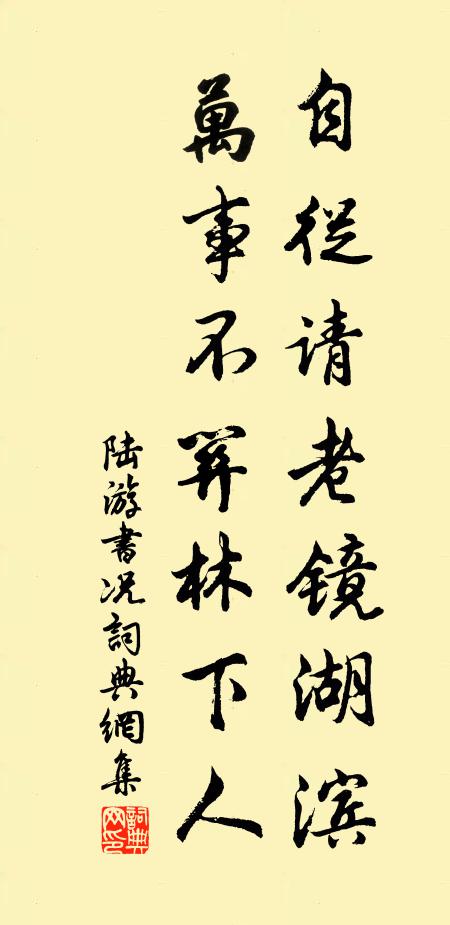 自從请老镜湖滨
萬事不關林下人
陆游書况詞典網集
詞典网印